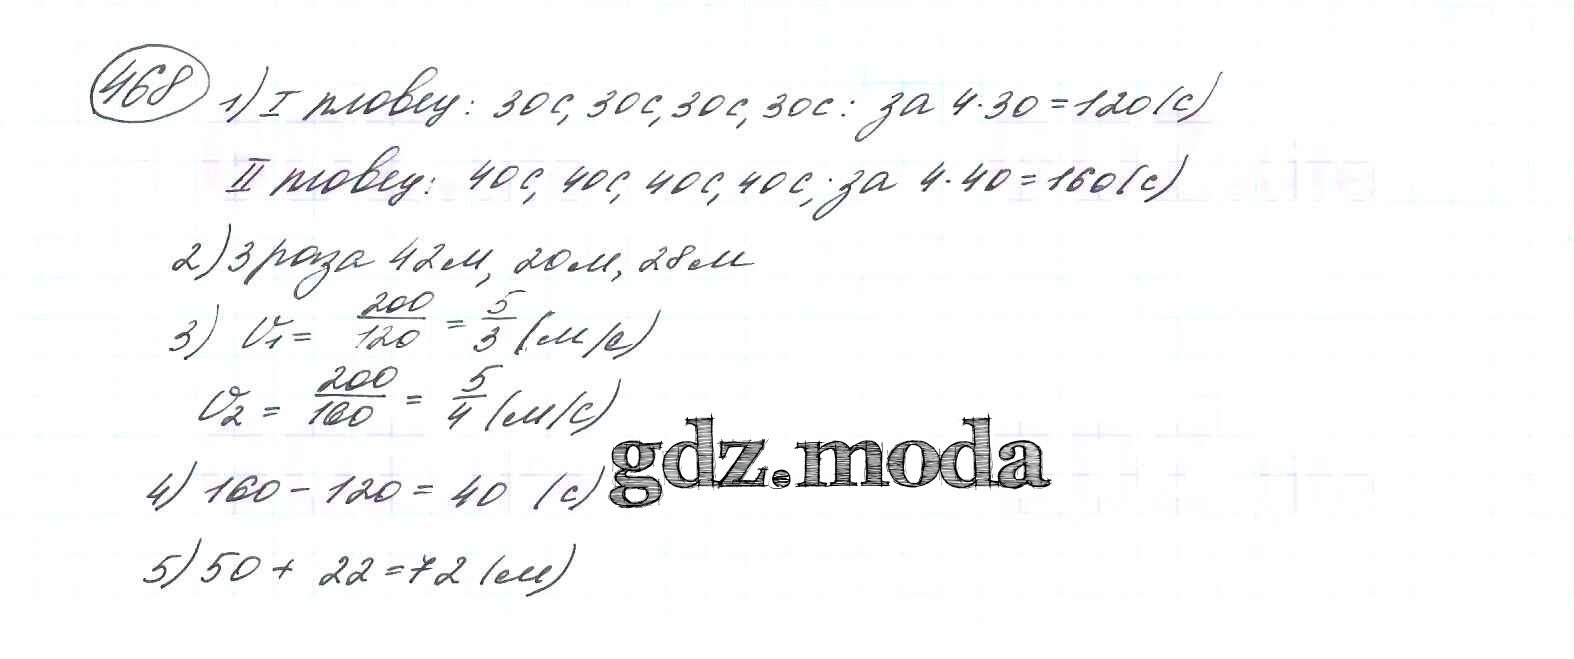 468 1) I пловец: 30с, 30с, 30с, 30с: за 4·30=120(с)
II пловец: 40с, 40с, 40с, 40с; за 4·40=160(с)
2) 3 раза 42м, 20м, 28м
3) V₁ = 200/120 = 5/3 (м/с)
V₂ = 200/160 = 5/4 (м/с)
gdz.moda
4) 160 - 120 = 40 (с)
5) 50 + 22 = 72 (м)